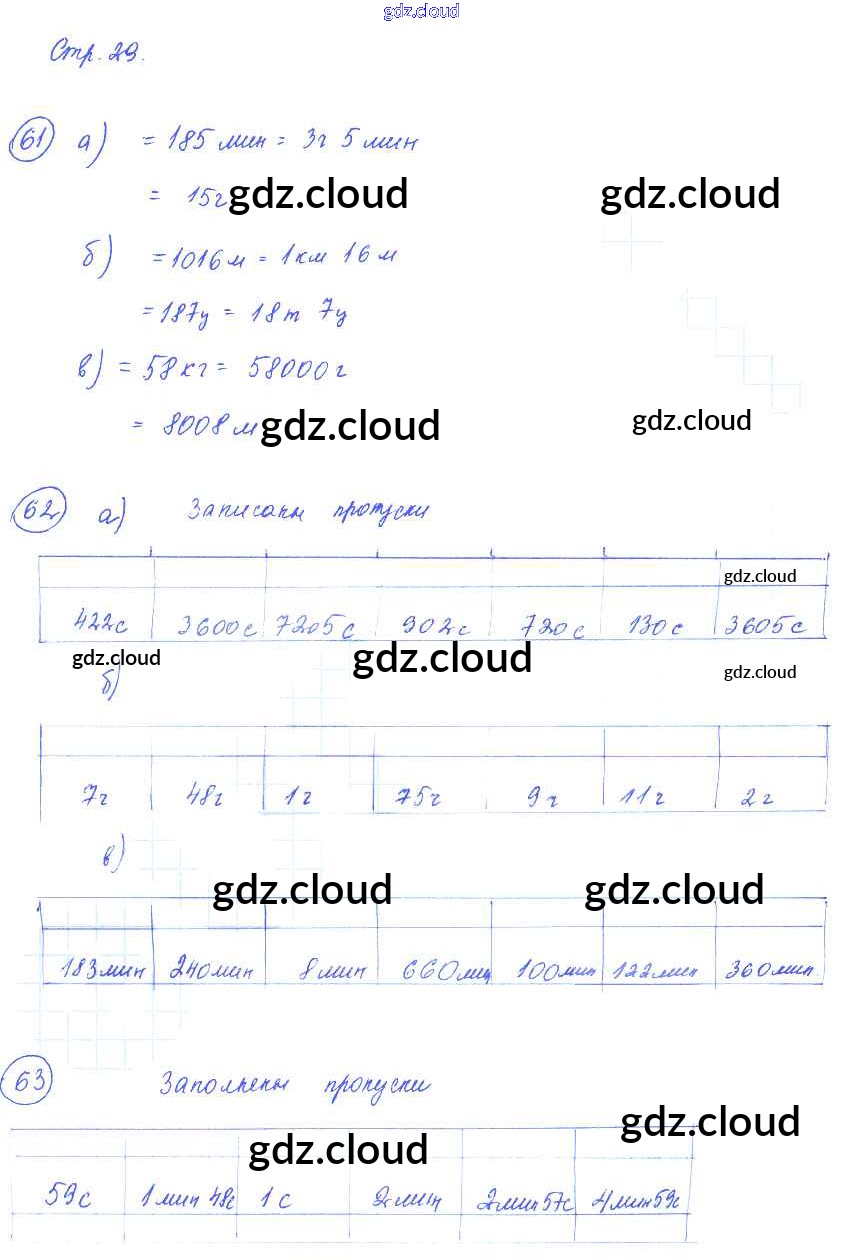 gdz.cloud
Стр. 29.
61 а) = 185 мин = 3ч 5 мин
= 15г gdz.cloud gdz.cloud
б) = 1016 м = 1 км 16 м
= 187ц = 18 т 7ц
в) = 58 кг = 58000 г
= 8008 м gdz.cloud gdz.cloud
62 а) Записаны пропуски
gdz.cloud
422с 3600с 7205с 902с 720с 130с 3605с
gdz.cloud gdz.cloud gdz.cloud
б)
7г 48г 1г 75г 9г 11г 2г
в)
gdz.cloud gdz.cloud
183мин 240мин 8мин 660мин 100мин 122мин 360мин.
63 Заполнены пропуски
gdz.cloud gdz.cloud
59с 1 мин 48с 1с 2мин 2мин 57с 4мин 59с